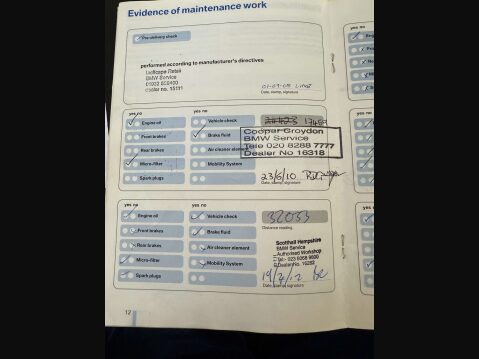 Evidence of maintenance work
Pre-delivery check
performed according to manufacturer's directives
BMW Service
dealer no. 15111
Date, stamp, signature
yes no
Engine oil
Front brakes
Rear brakes
Micro-filter
Spark plugs
Vehicle check
Brake fluid
Air cleaner element
Mobility System
Cooper Croydon
BMW Service
Tele 020 8288 7777
Dealer No 16318
23/6/10
Date, stamp, signature
yes no
yes no
Engine oil
Front brakes
Rear brakes
Micro-filter
Spark plugs
Vehicle check
Brake fluid
Air cleaner element
Mobility System
32033
Distance reading
Hampshire
BMW Service
Authorised Workshop
Date, stamp, signature
12